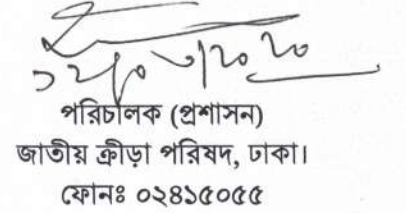 পরিচালক (প্রশাসন)
জাতীয় ক্রীড়া পরিষদ, ঢাকা।
ফোনঃ ০২৪১৫০৫৫